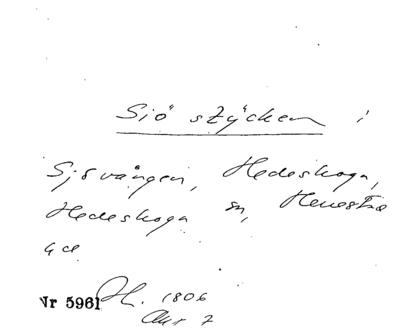 Siö stycken i
Sjövången, Hedeskoga,
Hedeskoga sn, Herrestad
Nr 5961 1806
Akt 7